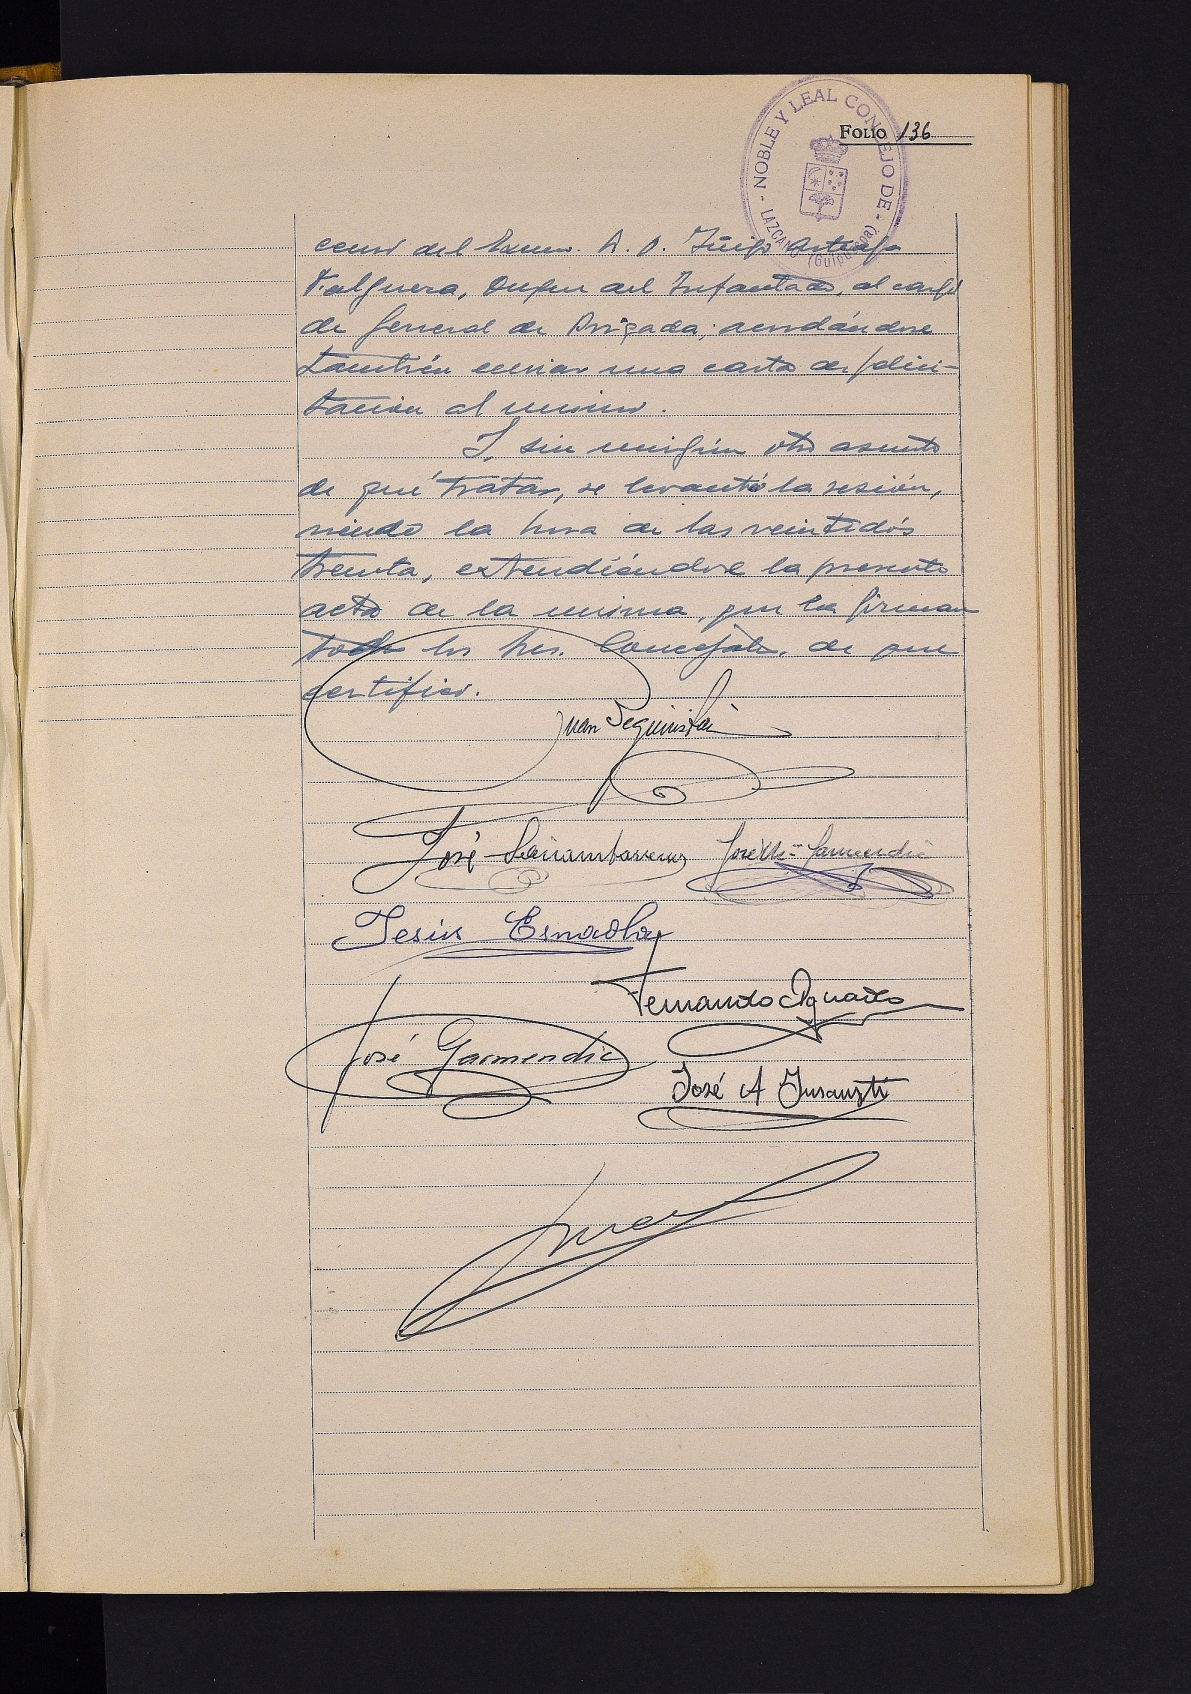 FOLIO 136
- NOBLE Y LEAL CONCEJO DE -
LAZCANO (Guipúzcoa)
censo del Excmo. S. D. Iñigo Arteaga
Falguera, Duque del Infantado, al cargo
de General de Brigada; acordándose
también enviar una carta de felici-
tación al mismo.
Y, sin ningún otro asunto
de qué tratar, se levantó la sesión,
siendo la hora de las veintidós
treinta, extendiéndose la presente
acta de la misma, que la firman
todos los Sres. Concejales, de que
certifico.
Juan Seguinstain
José Garmendia
Jesús Esnaola
Fernando Aguado
José Garmendia
José A Insausti